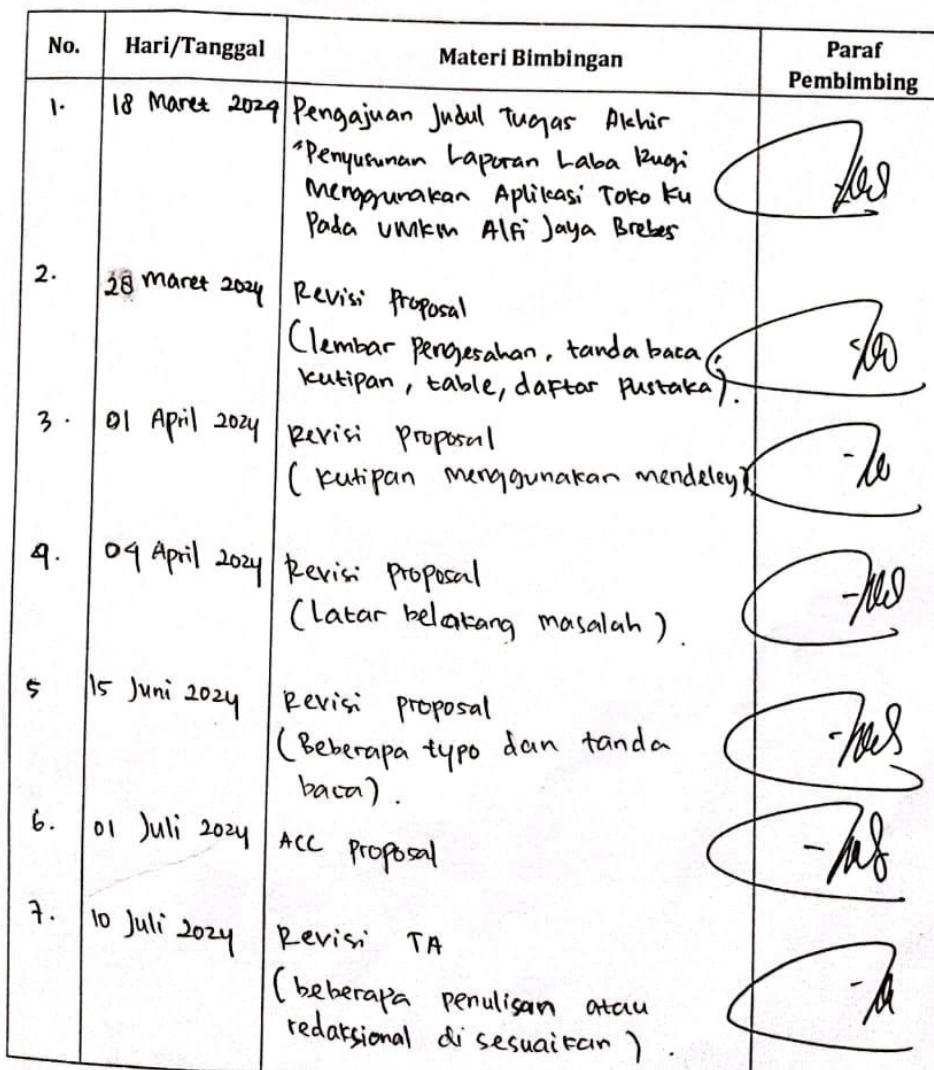 No. Hari/Tanggal Materi Bimbingan Paraf
Pembimbing
1. 18 Maret 2024 Pengajuan Judul Tugas Akhir
"Penyusunan Laporan Laba Rugi
Menggunakan Aplikasi Toko Ku
Pada UMKM Alfi Jaya Brebes
2. 28 Maret 2024 Revisi Proposal
(lembar pengesahan, tanda baca,
kutipan, table, daftar pustaka).
3. 01 April 2024 Revisi Proposal
(kutipan menggunakan mendeley)
4. 04 April 2024 Revisi Proposal
(Latar belakang masalah).
5 15 Juni 2024 Revisi proposal
(Beberapa typo dan tanda
baca).
6. 01 Juli 2024 ACC Proposal
7. 10 Juli 2024 Revisi TA
(beberapa penulisan atau
redaksional di sesuaikan).